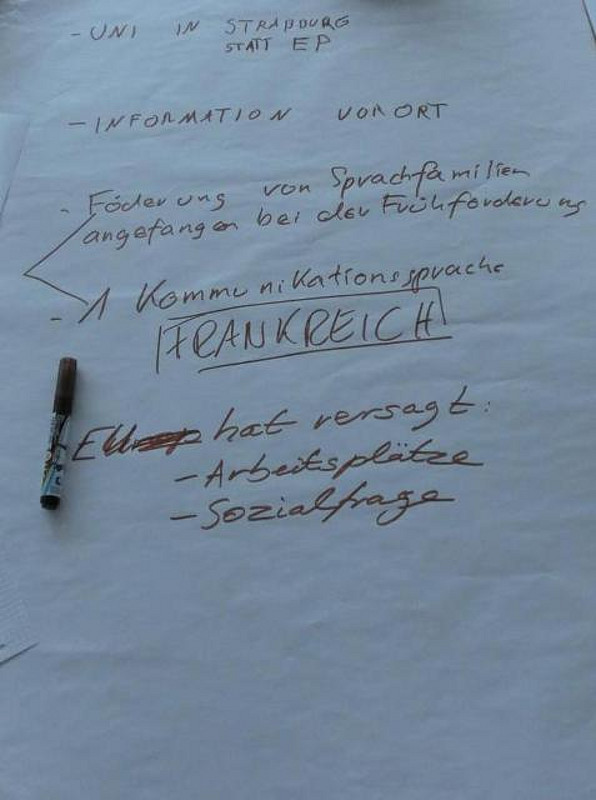 - UNI IN STRAßBURG
STATT EP
- INFORMATION VORORT
- Föderung von Sprachfamilien
angefangen bei der Frühförderung
- 1 Kommunikationssprache
FRANKREICH
EU hat versagt:
- Arbeitsplätze
- Sozialfrage